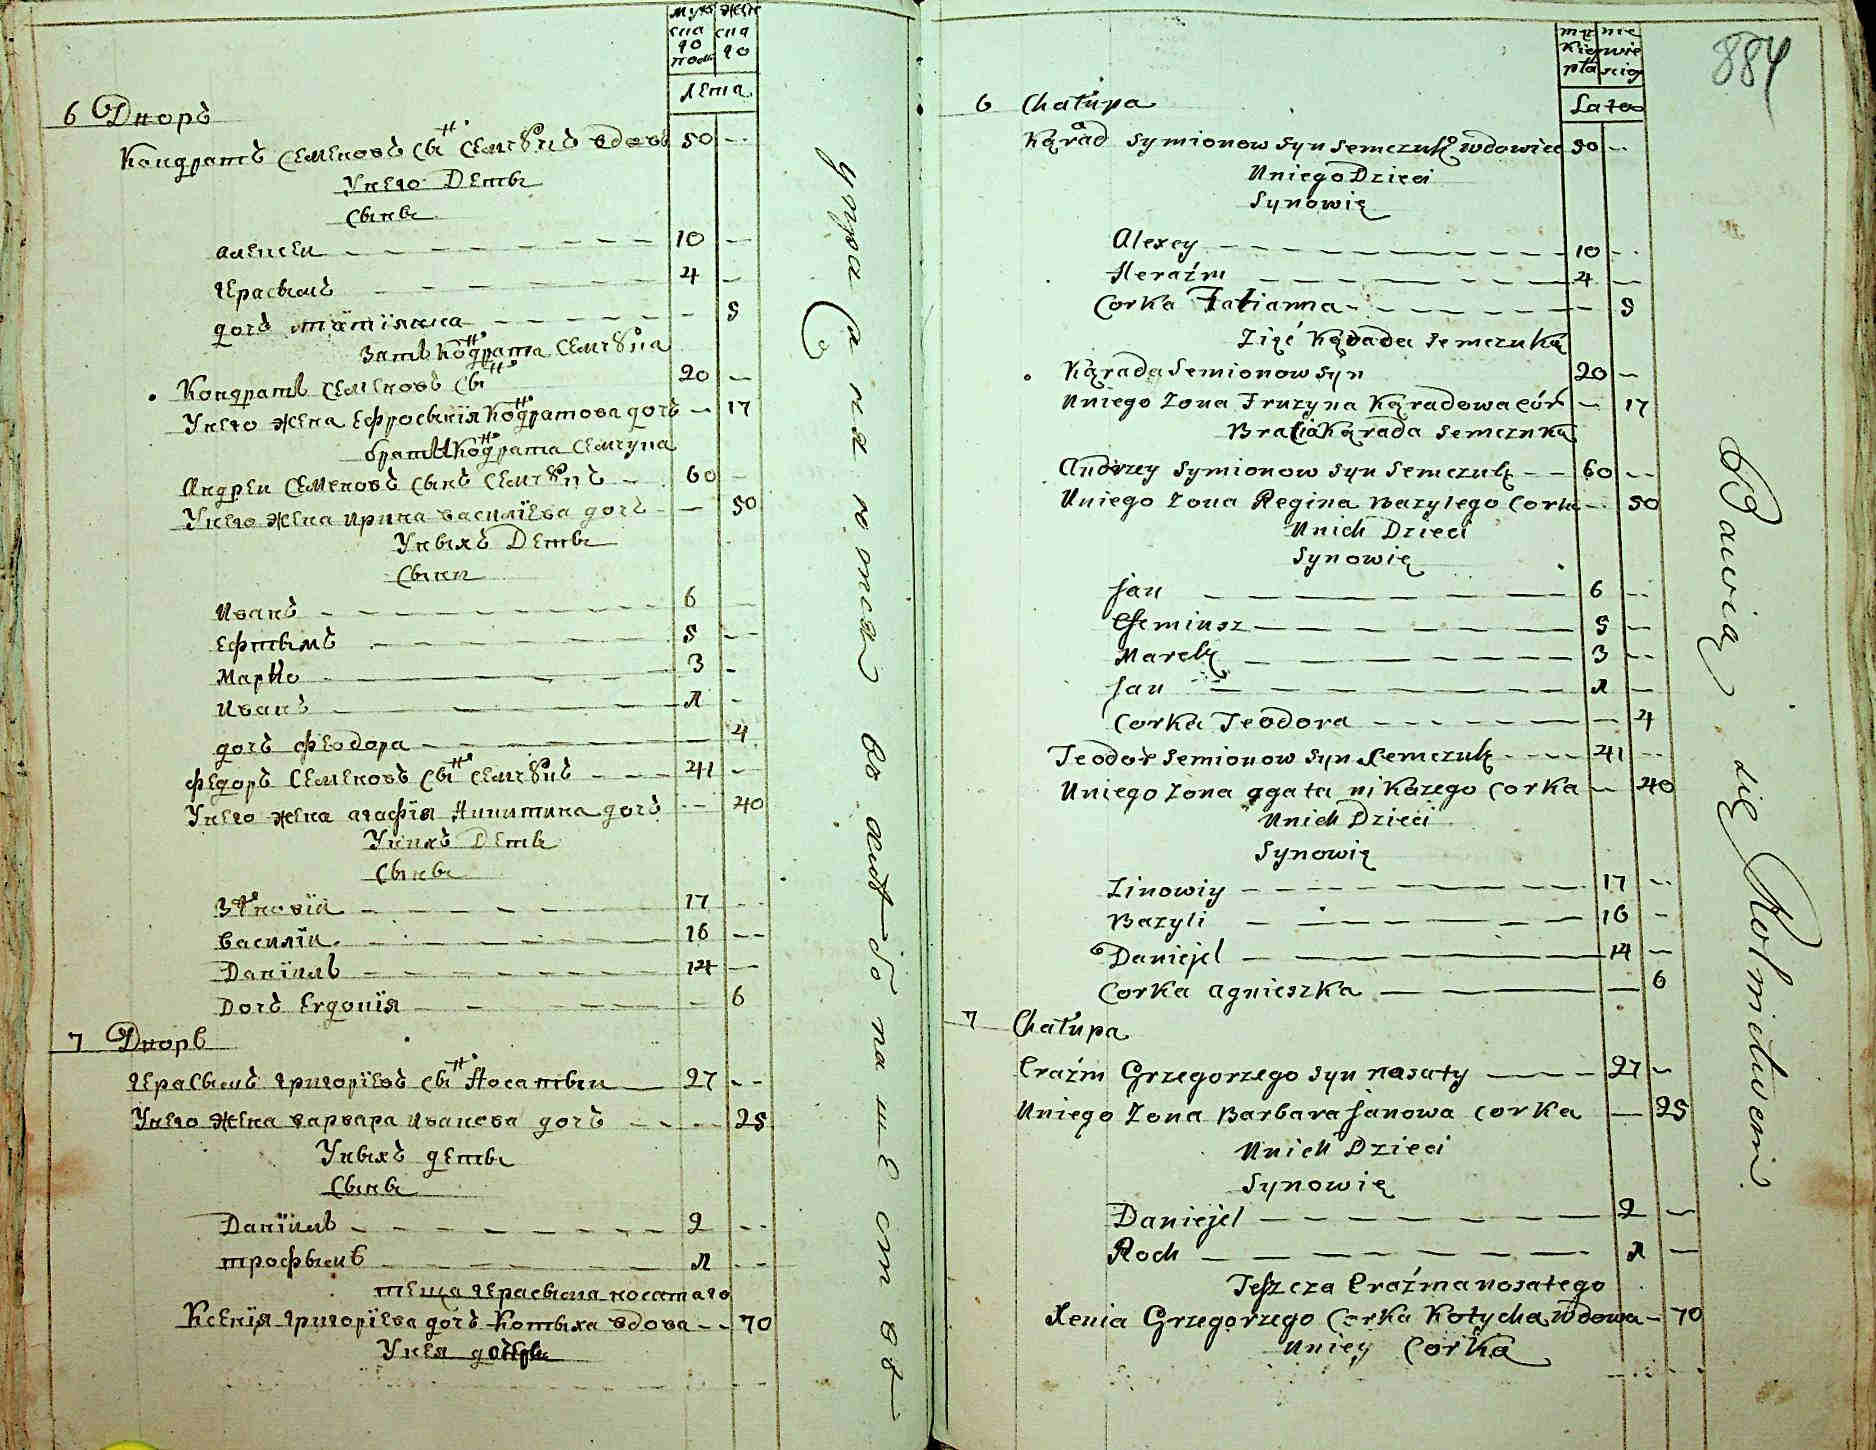 мужеска го полу женска го
лета
6 Дворъ
Кондратъ Семеновъ сынъ Семчукъ вдовъ 50 --
Унего Дети
Сыны
Алексеи 10 --
Герасымъ 4 --
дочъ татїяна -- 5
Зать Кондрата Семчука
Кондратъ Семеновъ сынъ 20 --
Унего жена Ефросынїя Кондратова дочъ -- 17
братя Кондрата Семчука
Андреи Семеновъ сынъ Семчукъ 60 --
Унего жена Ирина василїева дочъ -- 50
Уныхъ Дети
Сыни
Иванъ 6 --
Ефтымъ 5 --
Марко 3 --
Иванъ Л --
дочъ феодора -- 4
федоръ Семеновъ сынъ Семчукъ 41 --
Унего жена агафїя Никитина дочъ -- 40
Унихъ Дети
Сыны
Зѣновїи 17 --
василїи 16 --
Данїилъ 14 --
Дочъ Евдокїя -- 6
7 Дворъ
Герасымъ Григорїевъ сынъ Носатыи 27 --
Унего жена варвара Иванова дочъ -- 25
Уныхъ дети
Сыны
Данїилъ 2 --
трофымъ Л --
теща Герасыма носатаго
Ксенїя Григорїева дочъ Котыха вдова -- 70
Унея дочеры
упражняются во хлѣбопашествѣ
884
męskiey płci niewieściey
Lata
6 Chałupa
Kąrad Symionow Syn Semczuk wdowiec 50 --
Uniego Dzieci
Synowię
Alexey 10 --
Heraźm 4 --
Corka Tatianna -- 5
Zięć Kąrada Semczuka
Kąrada Semionow Syn 20 --
Uniego Zona Fruzyna Kąradowa cór -- 17
Bracia Kąrada Semczuka
Andrzey Symionow Syn Semczuk 60 --
Uniego Zona Regina Bazylego Corka -- 50
Unich Dzieci
Synowię
Jan 6 --
Efemiusz 5 --
Marek 3 --
Jan Л --
Corka Teodora -- 4
Teodor Semionow Syn Semczuk 41 --
Uniego Zona agata nikazego Corka -- 40
Unich Dzieci
Synowię
Zinowiy 17 --
Bazyli 16 --
Daniejel 14 --
Corka agnieszka -- 6
7 Chałupa
Eraźm Grzegorzego Syn nosaty 27 --
Uniego Zona Barbara Janowa Corka -- 25
Unich Dzieci
Synowię
Daniejel 2 --
Roch Л --
Teszcza Eraźma nosatego
Xenia Grzegorzego Corka Kotycha Wdowa -- 70
Uniey Corka
Bawią się Rolnictwem